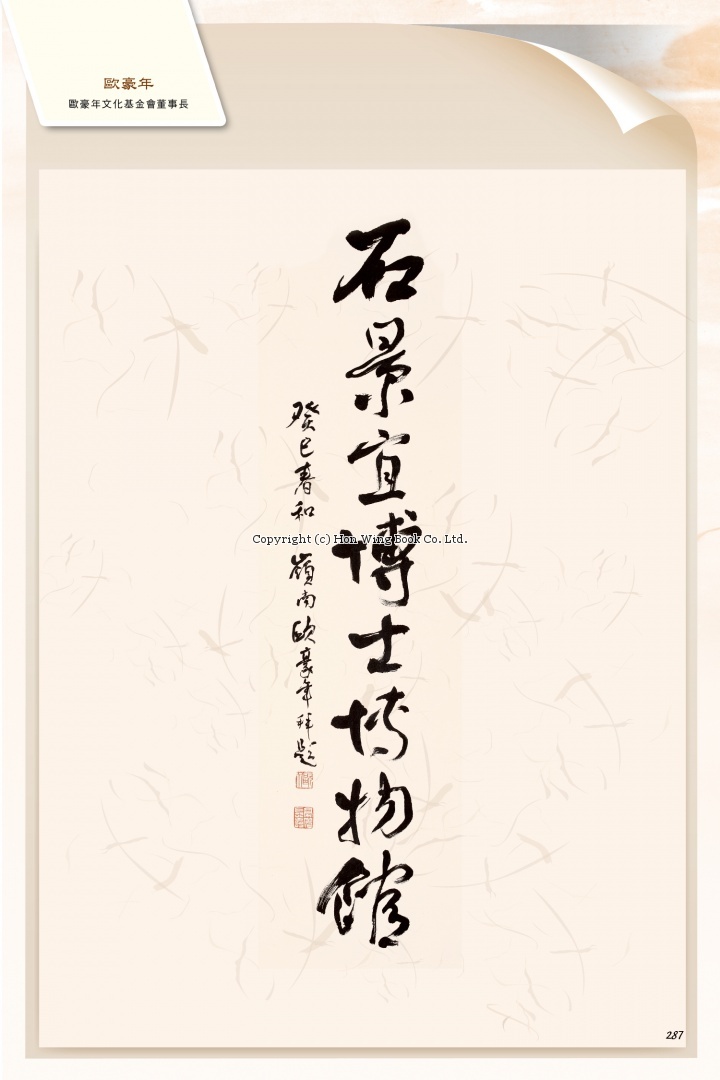 歐豪年
歐豪年文化基金會董事長
石景宜博士博物館
癸巳春和 嶺南歐豪年拜題
Copyright (c) Hon Wing Book Co. Ltd.
287